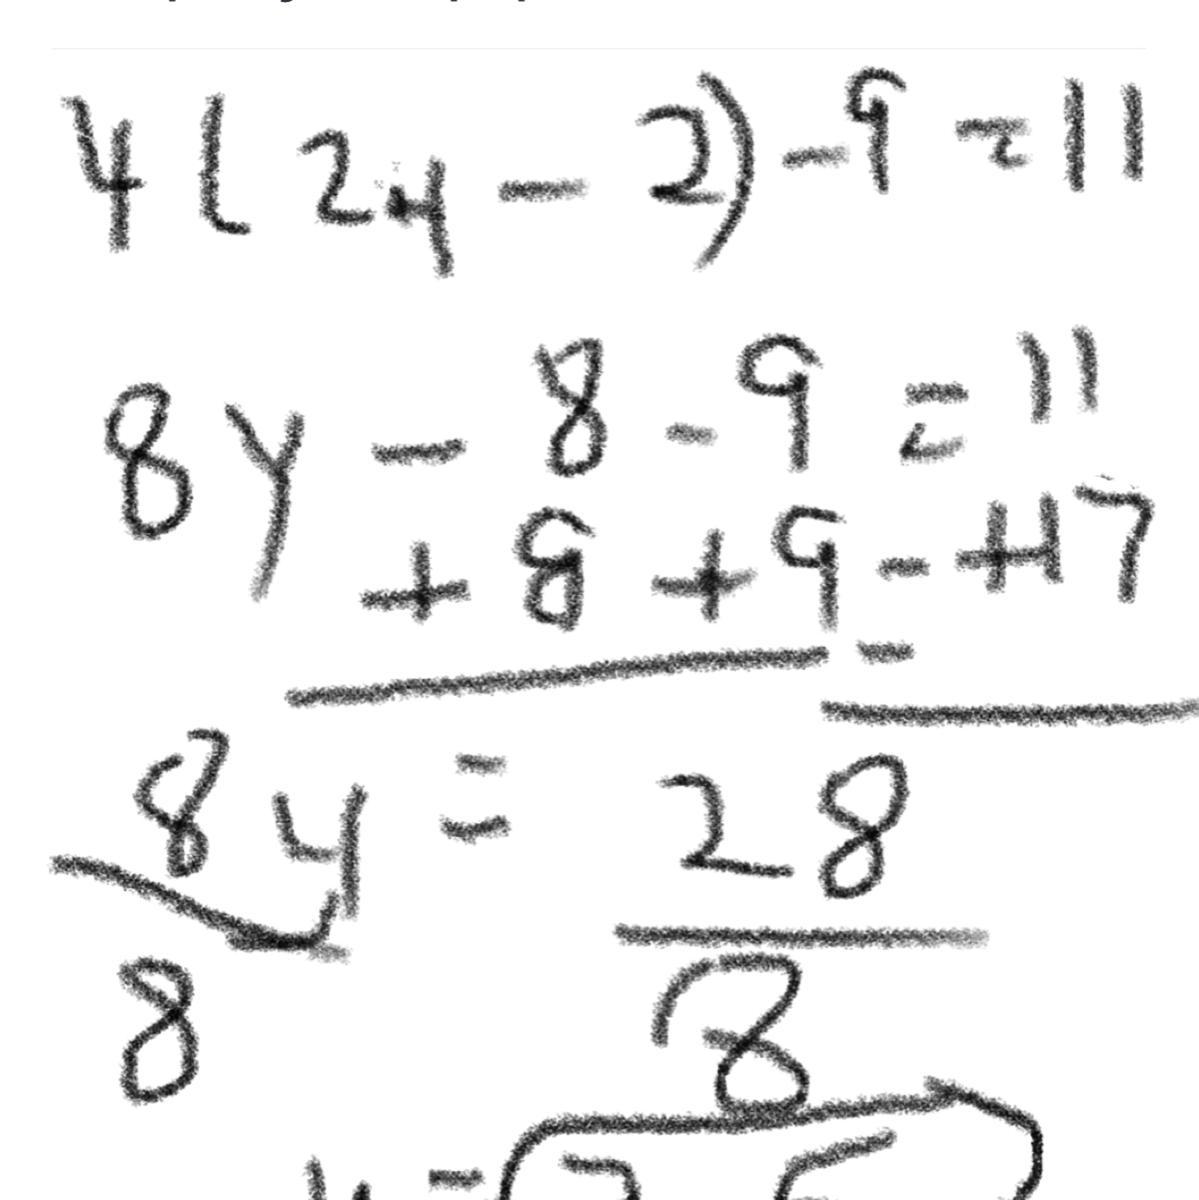 4(2y - 2) - 9 = 11
8y - 8 - 9 = 11
+ 8 + 9 = +17
8y = 28
8 8
y =